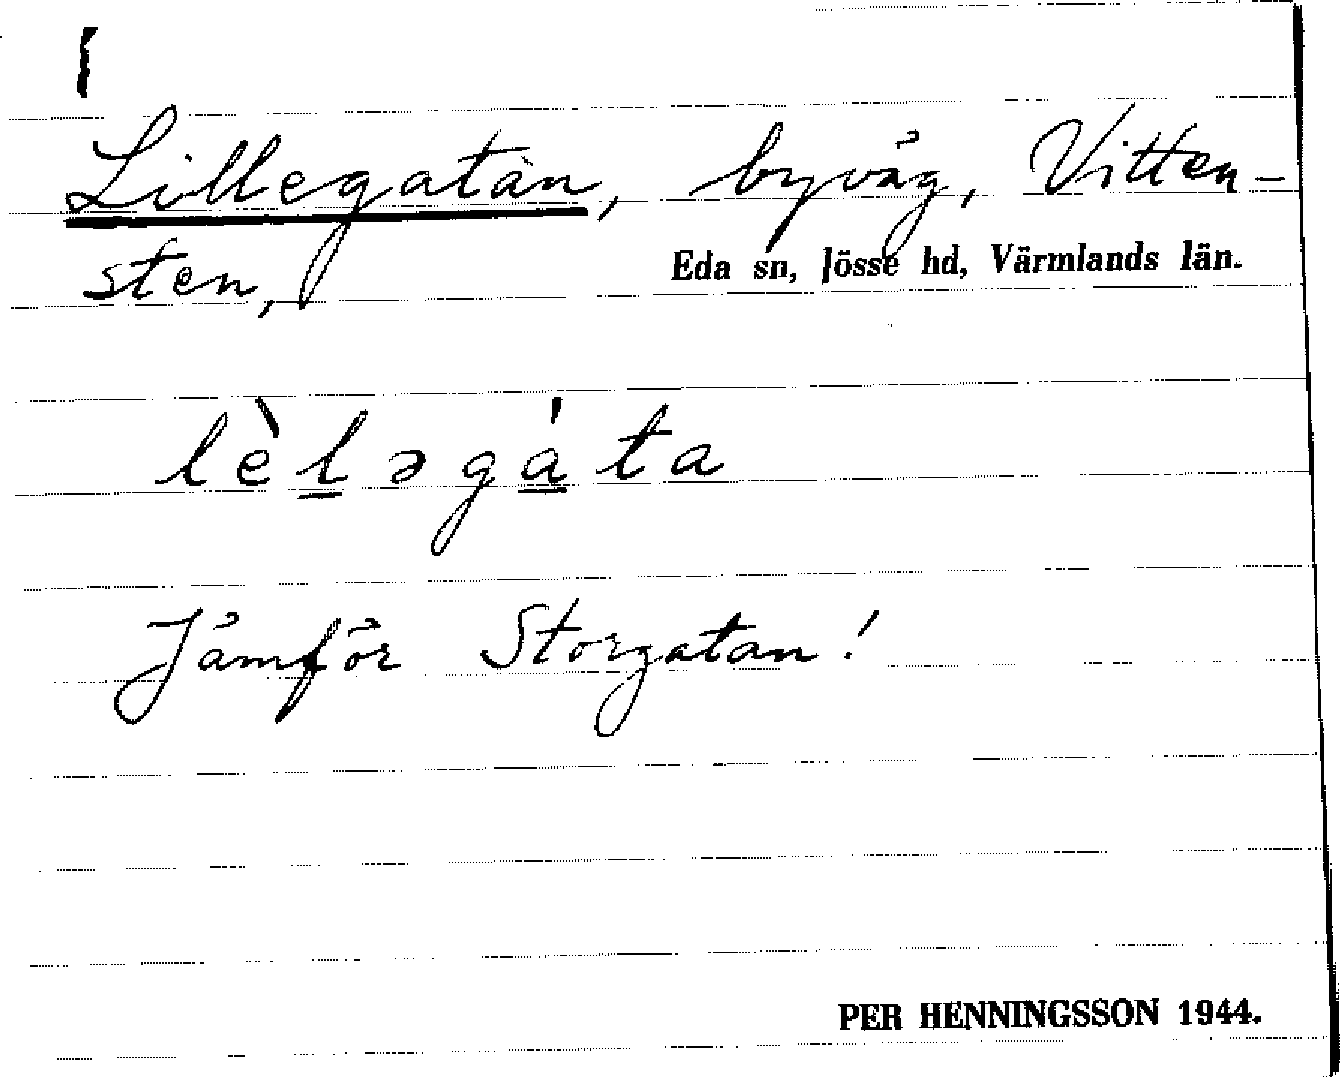 Lillegatan, byväg, Vitten-
sten, Eda sn, Jösse hd, Värmlands län.
lèl̲əgá̲ta
Jämför Storgatan!
PER HENNINGSSON 1944.